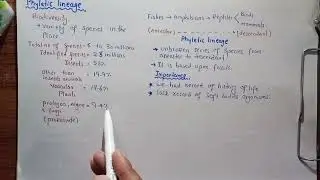 Phyletic lineage
Biodiversity
→ Variety of Species in the
Place
Total no of Species = 5 to 30 millions
Identified species =
Insects =
Other than
insects animals = 19.9%
Vascular
Plants
(prokaryote)
Fishes → amphibians → Reptiles
Birds
mammals
(ancestor) (descendent)
Phyletic lineage
→ unbroken series of Species from
ancestor to descendent
→ It is based upon fossils.
Importance
→ we had record of history of life
→ lack record of soft bodies organisms